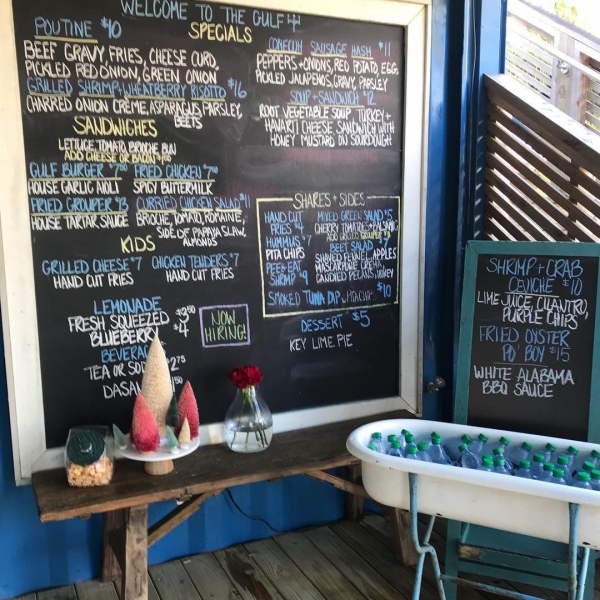 WELCOME TO THE GULF
SPECIALS
POUTINE $10
BEEF GRAVY, FRIES, CHEESE CURD,
PICKLED RED ONION, GREEN ONION
GRILLED SHRIMP + WHEATBERRY RISOTTO $16
CHARRED ONION CRÈME, ASPARAGUS, PARSLEY,
BEETS
CONECUH SAUSAGE HASH $11
PEPPERS + ONIONS, RED POTATO, EGG
PICKLED JALAPEÑOS, GRAVY, PARSLEY
SOUP + SANDWICH $12
ROOT VEGETABLE SOUP, TURKEY +
HAVARTI CHEESE SANDWICH WITH
HONEY MUSTARD ON SOURDOUGH
SANDWICHES
LETTUCE, TOMATO, BRIOCHE BUN
ADD CHEESE OR BACON
GULF BURGER
HOUSE GARLIC AIOLI
FRIED CHICKEN
SPICY BUTTERMILK
FRIED GROUPER
HOUSE TARTAR SAUCE
CURRIED CHICKEN SALAD $11
BRIOCHE, TOMATO, ROMAINE,
SIDE OF PAPAYA SLAW,
ALMONDS
KIDS
GRILLED CHEESE $7
HAND CUT FRIES
CHICKEN TENDERS $7
HAND CUT FRIES
LEMONADE
FRESH SQUEEZED $3.50
BLUEBERRY $4
BEVERA
TEA OR SOD
DASA
NOW
HIRING!
SHARES + SIDES
HAND CUT
FRIES $4
HUMMUS $7
PITA CHIPS
PEEL + EAT
SHRIMP $9
SMOKED TUNA DIP $10
MIXED GREEN SALAD $5
CHERRY TOMATO + BALSAMIC
ADD GRILLED GROUPER
BEET SALAD $7
SHAVED FENNEL, APPLES
MASCARPONE CREAM
CANDIED PECANS, HONEY
DESSERT $5
KEY LIME PIE
SHRIMP + CRAB
CEVICHE $10
LIME JUICE, CILANTRO,
PURPLE CHIPS
FRIED OYSTER
PO' BOY $15
WHITE ALABAMA
BBQ SAUCE